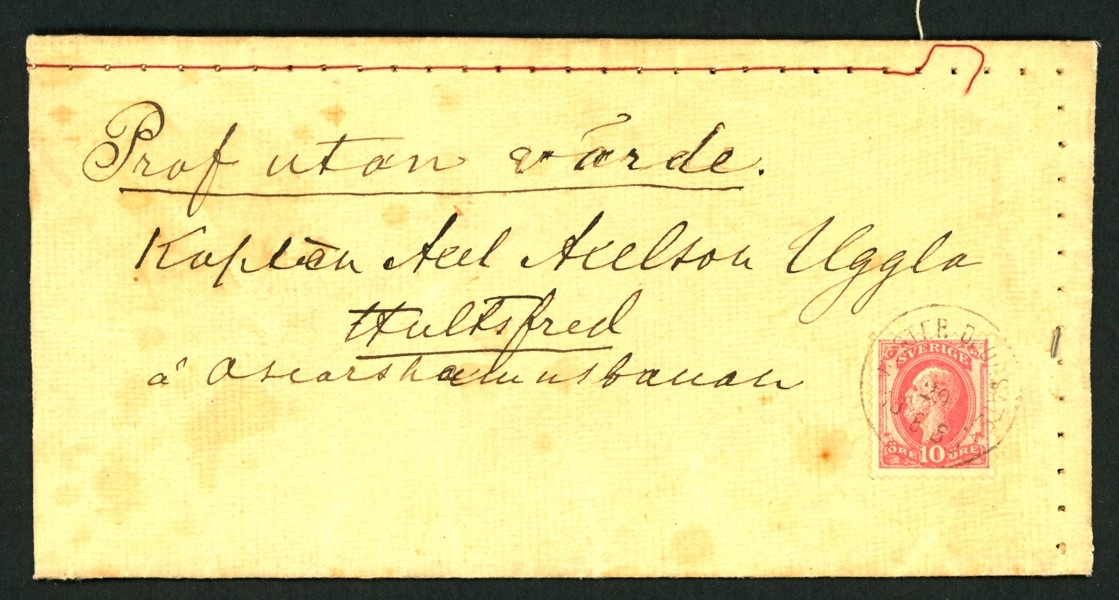 Prof utan värde.
Kapten Axel Axelson Uggla
Hultsfred
à Oscarshamnsbanan
SVERIGE
10
ÖRE ÖRE